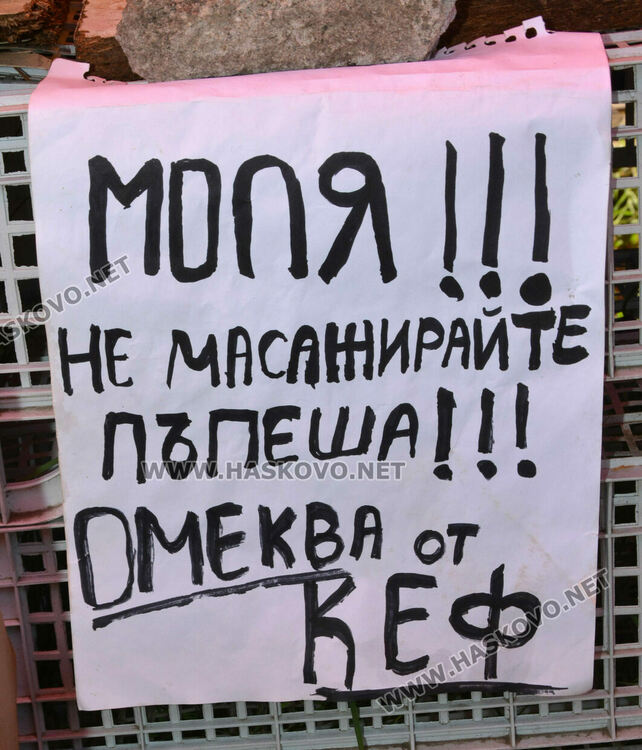 МОЛЯ !!!
НЕ МАСАЖИРАЙТЕ
ПЪПЕША!!!
ОМЕКВА от
КЕФ
WWW.HASKOVO.NET
WWW.HASKOVO.NET
WWW.HASKOVO.NET